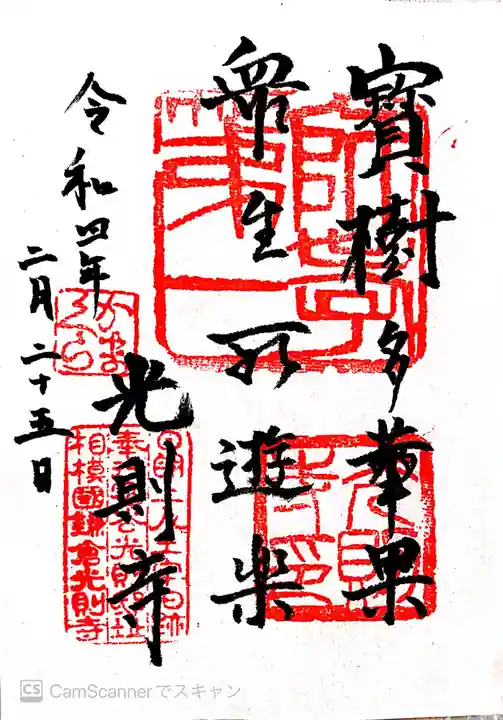 寳樹多華果
衆生所遊樂
令和四年
二月二十五日
かまくら
光則寺
相模國鎌倉光則寺
CS CamScannerでスキャン